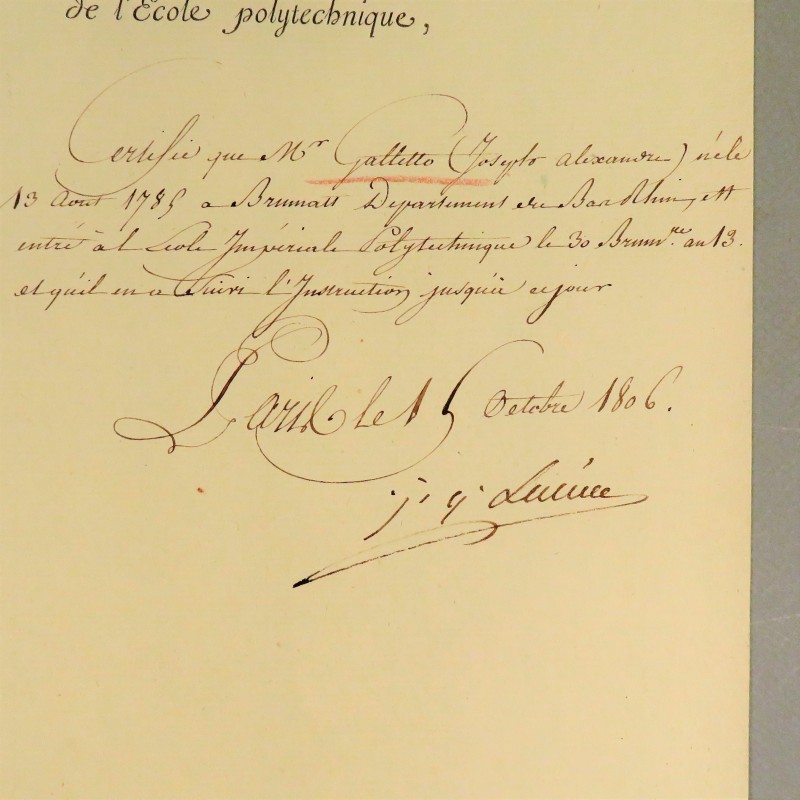 de l'Ecole polytechnique,
Certifie que Mr Galtetto (Joseph alexandre) né le
13 Aout 1785 a Brumatt Departement du Bas Rhin, est
entré à l'Ecole Impériale Polytechnique le 30 Brum.re an 13.
et qu'il en a Suivi l'Instruction jusqu'à ce jour
Paris le 15 Octobre 1806.
j. g.